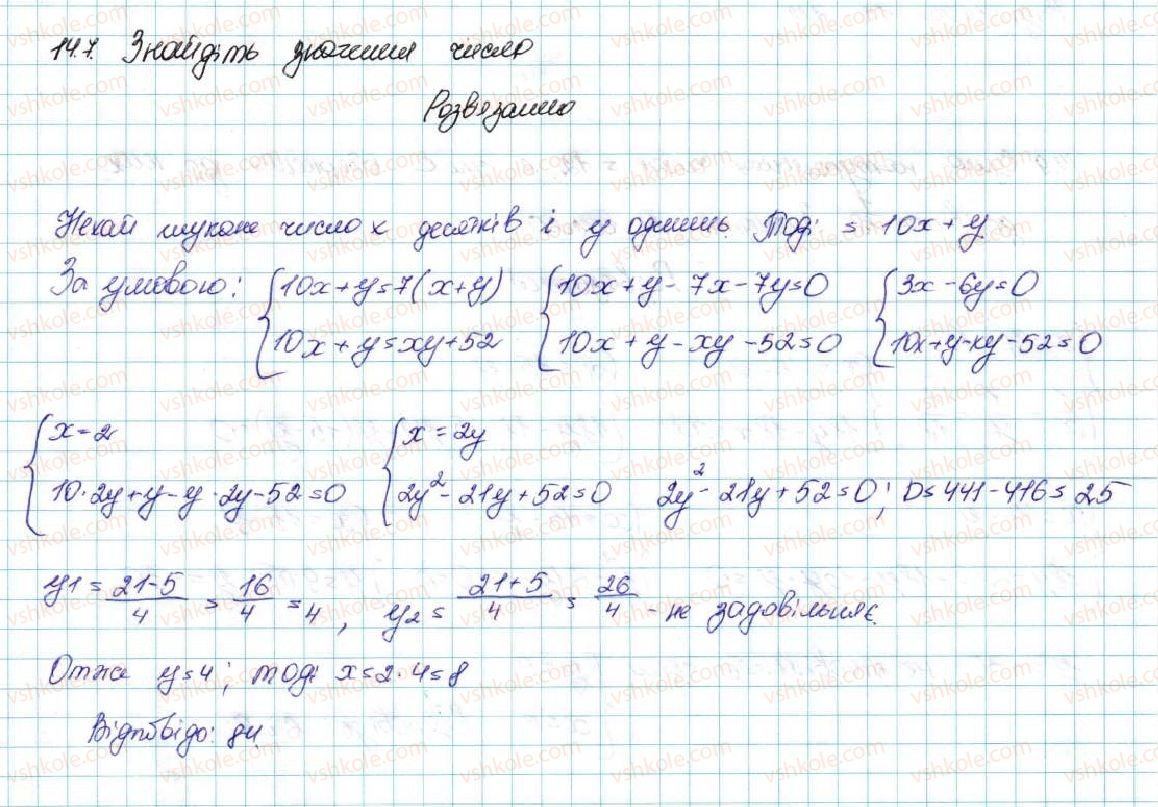 14.7. Знайдіть значення число
Розв'язання
Нехай шукане число x десятків і y одиниць. Тоді = 10x + y.
За умовою: { 10x + y = 7(x + y) { 10x + y - 7x - 7y = 0 { 3x - 6y = 0
10x + y = xy + 52 10x + y - xy - 52 = 0 10x + y - xy - 52 = 0
{ x = 2 { x = 2y
10·2y + y - y·2y - 52 = 0 2y² - 21y + 52 = 0 2y² - 21y + 52 = 0; D = 441 - 416 = 25
y1 = (21-5)/4 = 16/4 = 4, y2 = (21+5)/4 = 26/4 - не задовільняє.
Отже y = 4; тоді x = 2·4 = 8
Відповідь: 84.
vshkole.com